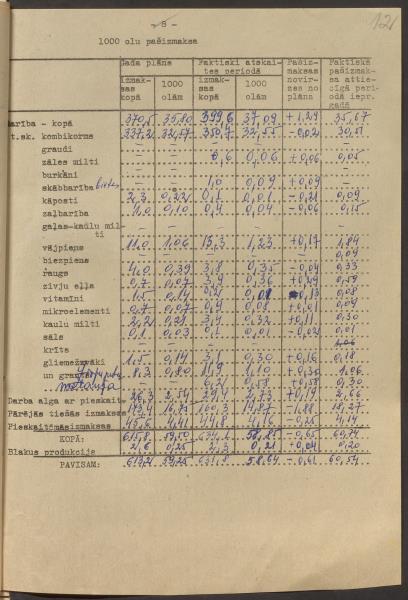 - 8 -
121
1000 olu pašizmaksa
Gada plāns Faktiski atskai-tes periodā Pašiz-maksas novir-zes no plāna Faktiskā pašizmak-sa attie-cīgā peri-odā iepr. gadā
izmak-sas kopā 1000 olām izmak-sas kopā 1000 olām
Barība - kopā 370,5 35,80 399,6 37,09 + 1,29 35,67
t.sk. kombikorms 337,2 32,57 350,7 32,55 - 0,02 30,51
graudi - - - - - -
zāles milti - - 0,6 0,06 + 0,06 0,05
burkāni - - - - -
skābbarība bietes - - 1,0 0,09 + 0,09
kāposti 2,3 0,22 0,1 0,01 - 0,21 0,09
zaļbarība 1,0 0,10 0,4 0,04 - 0,06 0,15
gaļas-kaulu mil-
ti - - - - - -
vājpiens 11,0 1,06 13,3 1,23 + 0,17 1,84
biezpiens - - - - - 0,09
raugs 4,0 0,39 3,8 0,35 - 0,04 0,33
zivju eļļa 0,7 0,07 3,9 0,36 + 0,29 0,59
vitamīni 1,5 0,14 0,2 0,01 - 0,13 0,08
mikroelementi 0,7 0,07 0,9 0,08 + 0,01 0,09
kaulu milti 2,2 0,21 3,4 0,32 + 0,11 0,30
sāls 0,1 0,03 0,1 0,01 - 0,02 0,01
krīts - - - - -
gliemežvāki 1,5 0,14 3,1 0,30 + 0,16 0,18
un grants 8,3 0,80 11,9 1,10 + 0,30 1,06
- - 6,2 0,58 + 0,58 0,30
Darba alga ar pieskait. 26,3 2,54 29,4 2,73 + 0,19 2,66
Pārējās tiešās izmaksas 16,75 160,3 14,87 - 1,88 18,27
Pieskaitāmās izmaksas 45,6 4,41 44,8 4,16 - 0,25 4,14
KOPĀ: 615,8 59,50 634,1 58,85 - 0,65 60,74
Blakus produkcija 2,6 0,25 2,3 0,21 + 0,04 0,20
PAVISAM: 613,2 59,25 631,8 58,64 - 0,61 60,54